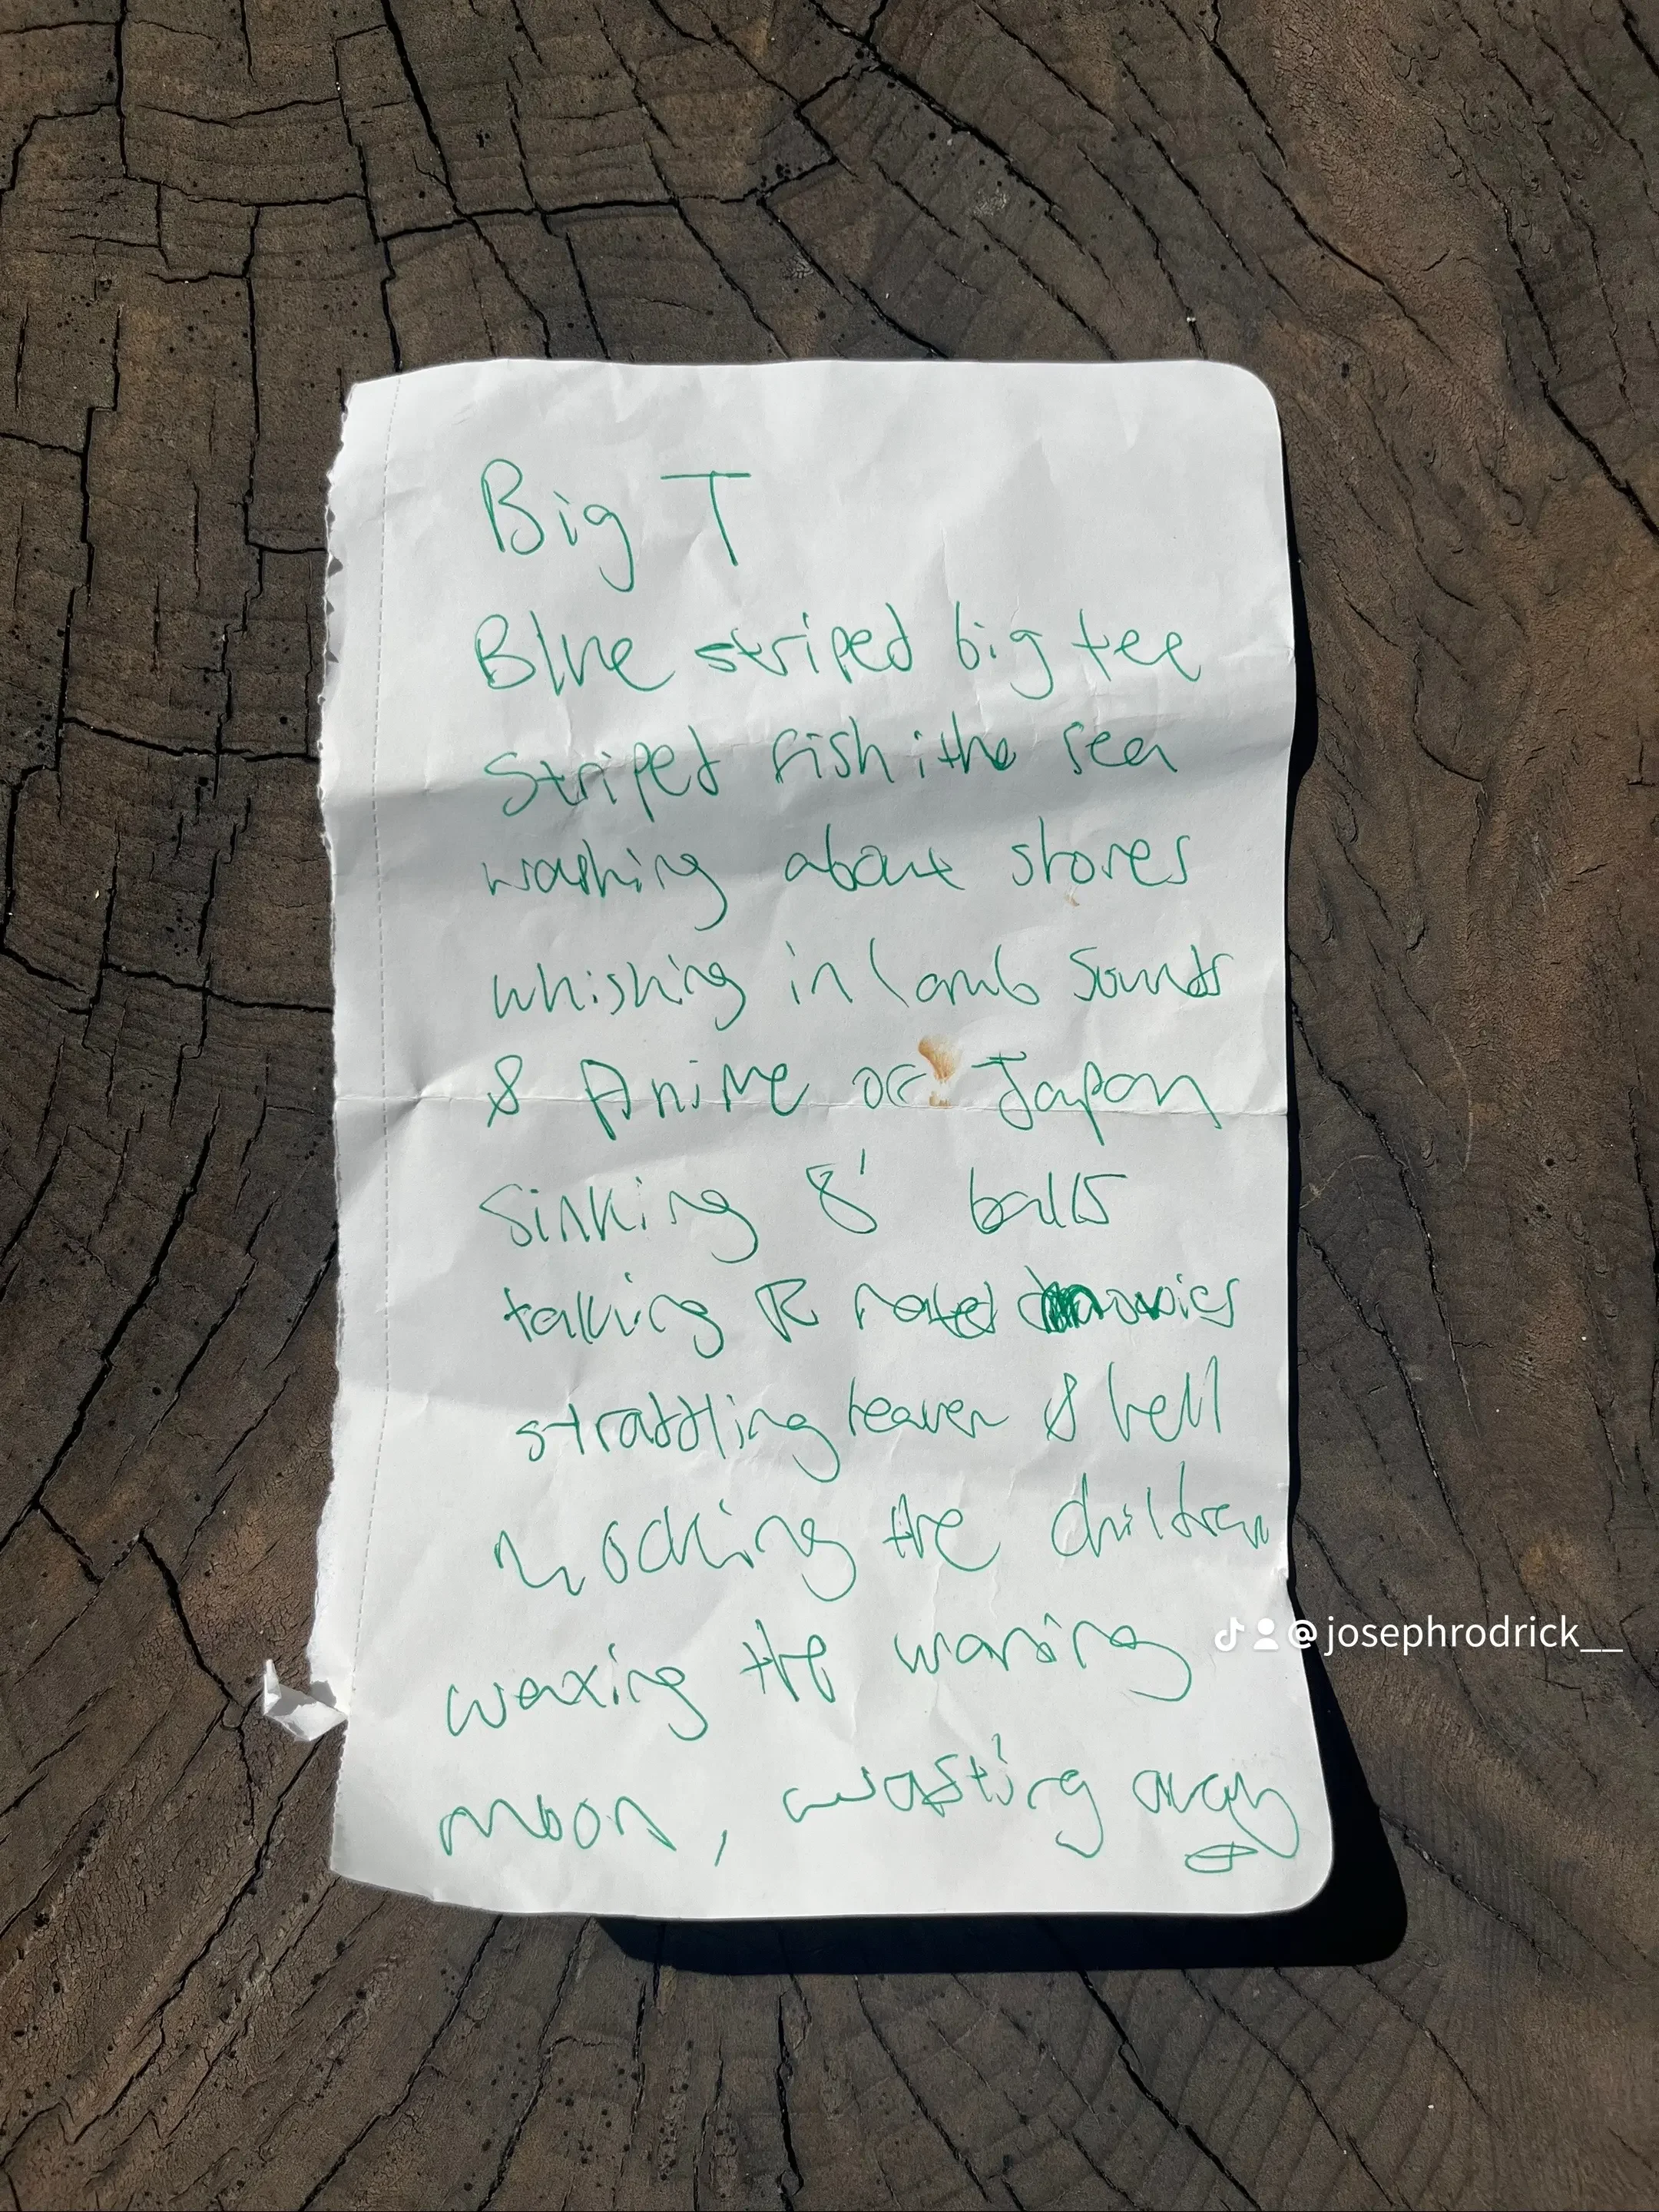 Big T
Blue striped big tee
striped fish i the sea
washing about stores
whishing in lamb sounds
& Anime of Japan
Sinking 8' balls
talking R rated movies
straddling heaven & hell
mocking the children
waxing the waning
@josephrodrick__
moon, wasting away